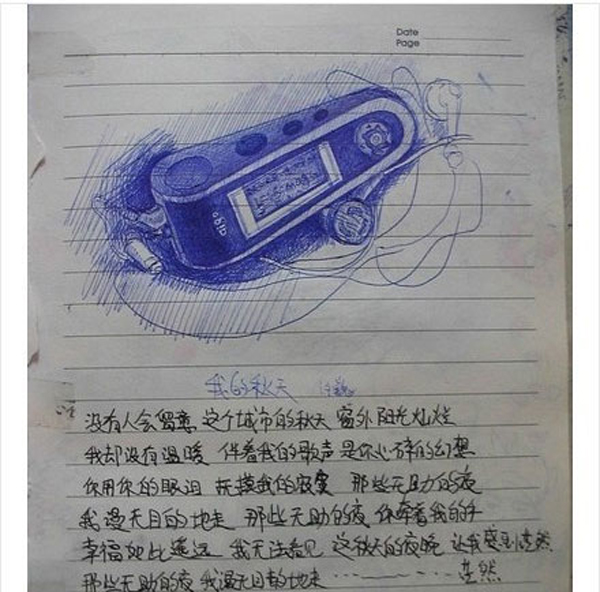 Date
Page
aigo
我的秋天 许巍
没有人会留意 这个城市的秋天 窗外阳光灿烂
我却没有温暖 伴着我的歌声 是你心碎的幻想
你用你的眼泪 抚摸我的寂寞 那些无助的夜
我漫无目的地走 那些无助的夜 你牵着我的手
幸福如此遥远 我无法看见 这秋天的夜晚 让我感到茫然
那些无助的夜 我漫无目的地走 …… 茫然